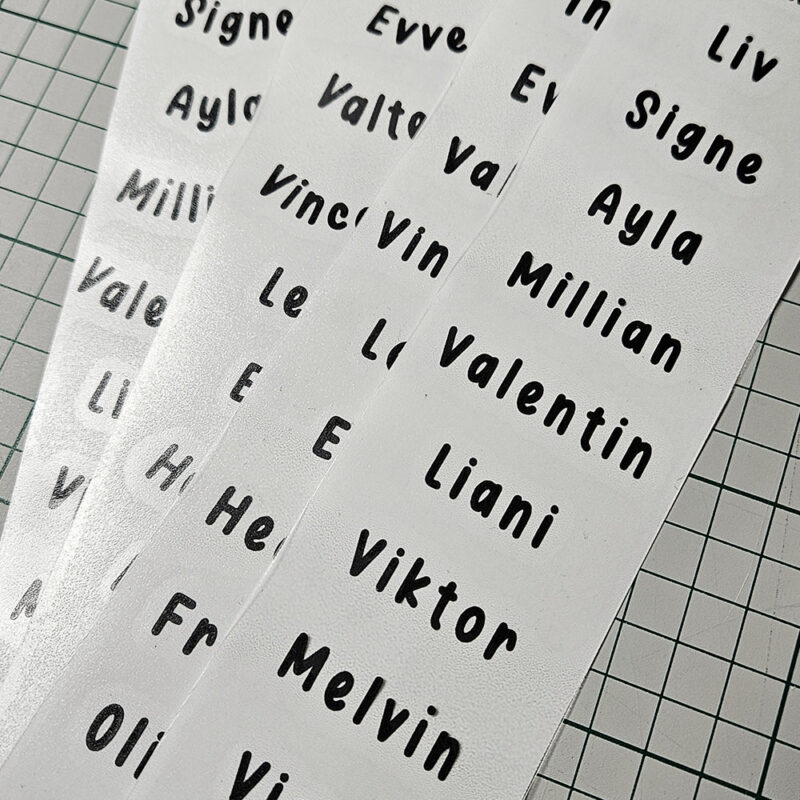 Signe
Ayla
Milli
Vale
Li
V
Evve
Valt
Vinc
Le
E
H
in
Ev
Va
Vin
L
E
He
Fr
Oli
Liv
Signe
Ayla
Millian
Valentin
Liani
Viktor
Melvin
Vi